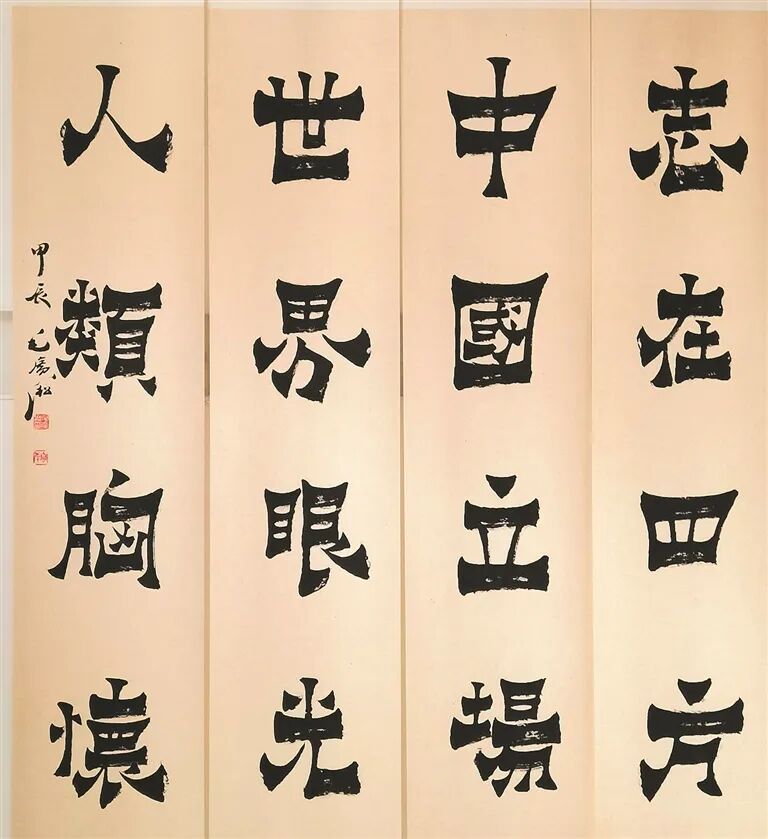 志在四方
中國立場
世界眼光
人類胸懷
甲辰 毛廣淞